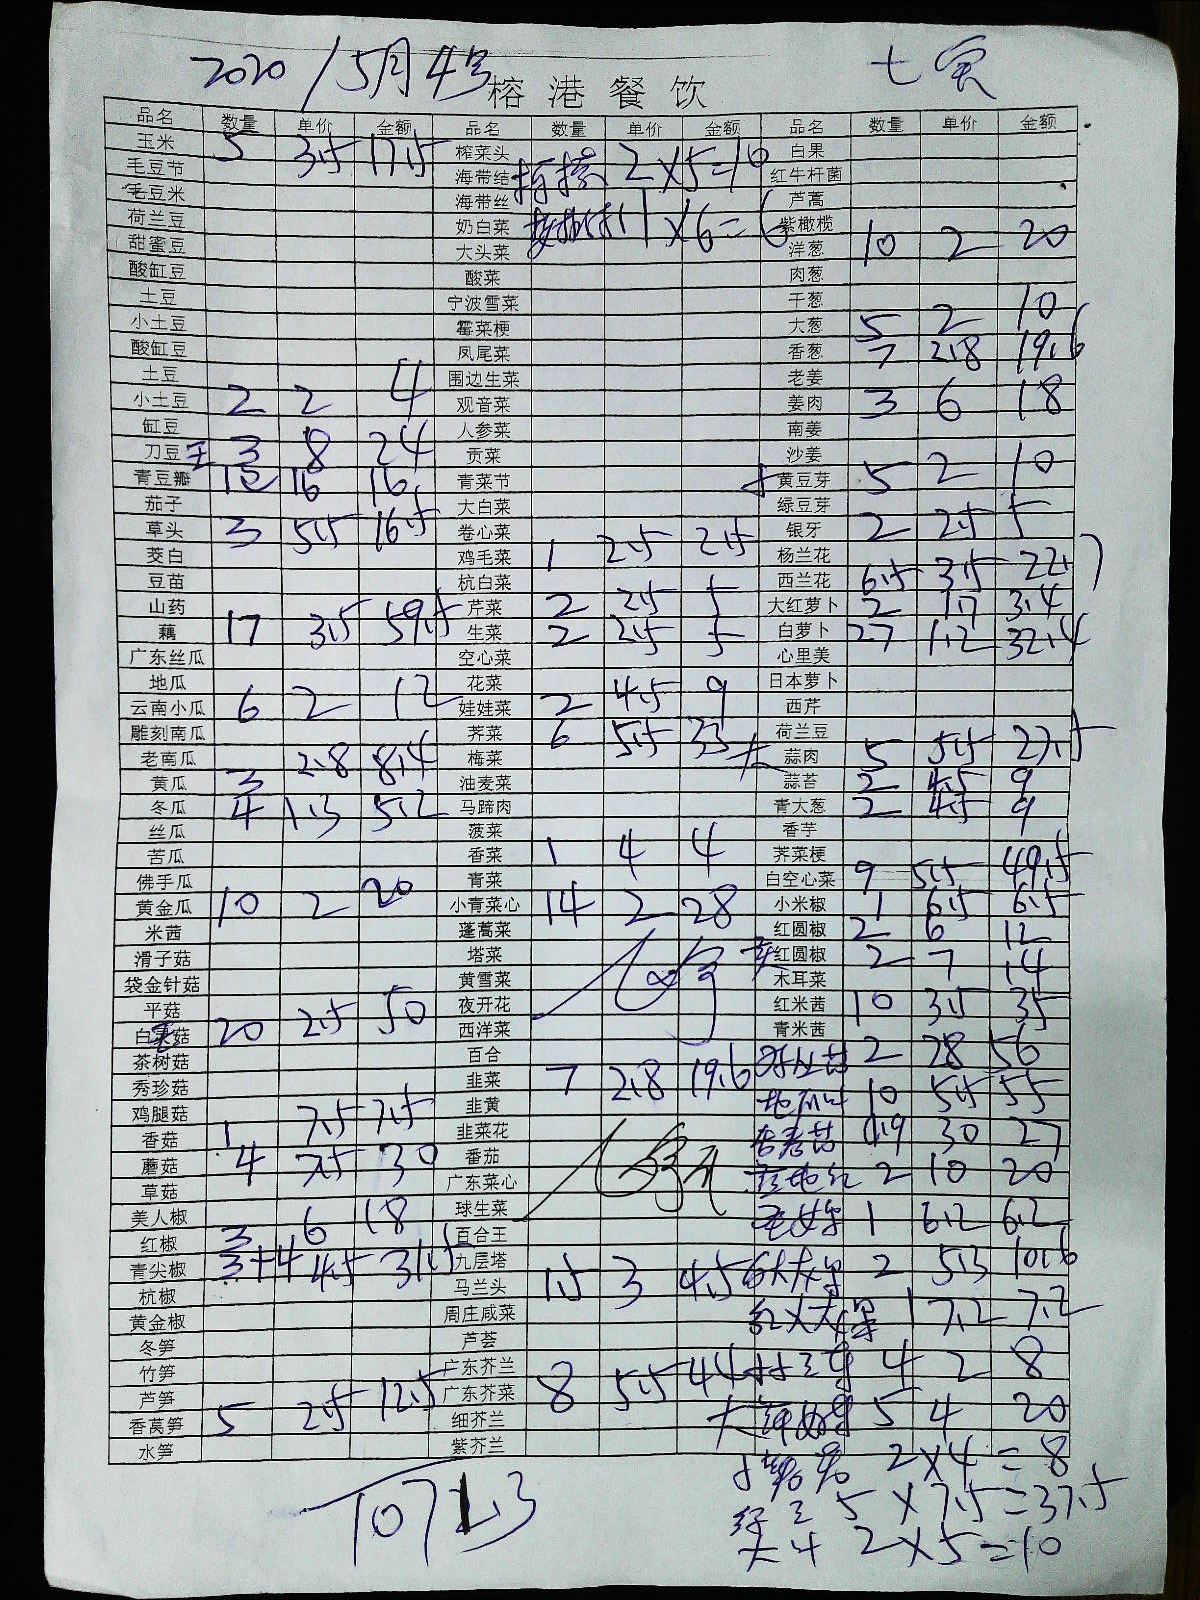 2020/5月4号
榕港餐饮
品名 数量 单价 金额 品名 数量 单价 金额 品名 数量 单价 金额
玉米 5 3.5 17.5 榨菜头 2×5=10 白果
毛豆节 海带结 红牛杆菌
毛豆米 海带丝 芦蒿
荷兰豆 奶白菜 1×6=6 紫橄榄
甜蜜豆 大头菜 洋葱 10 2 20
酸缸豆 酸菜 肉葱
土豆 宁波雪菜 干葱
小土豆 霉菜梗 大葱 5 2 10
酸缸豆 凤尾菜 香葱 7 2.8 19.6
土豆 围边生菜 老姜
小土豆 2 2 4 观音菜 姜肉 3 6 18
缸豆 人参菜 南姜
刀豆 3 8 24 贡菜 沙姜
青豆瓣 16 16 青菜节 黄豆芽 5 2 10
茄子 大白菜 绿豆芽
草头 3 5.5 16.5 卷心菜 银牙 2 2.5 5
茭白 鸡毛菜 1 2.5 2.5 杨兰花
豆苗 杭白菜 西兰花 6.5 3.5 22.7
山药 芹菜 2 2.5 5 大红萝卜 2 1.7 3.4
藕 17 3.5 59.5 生菜 2 2.5 5 白萝卜 27 1.2 32.4
广东丝瓜 空心菜 心里美
地瓜 花菜 日本萝卜
云南小瓜 6 2 12 娃娃菜 2 4.5 9 西芹
雕刻南瓜 荠菜 6 5.5 33 荷兰豆
老南瓜 梅菜 大 蒜肉 5 5.5 27.5
黄瓜 3 2.8 8.4 油麦菜 蒜苔 2 4.5 9
冬瓜 4 1.3 5.2 马蹄肉 青大葱 2 4.5 9
丝瓜 菠菜 香芋
苦瓜 香菜 1 4 4 荠菜梗
佛手瓜 青菜 白空心菜 9 5.5 49.5
黄金瓜 10 2 20 小青菜心 14 2 28 小米椒 1 6.5 6.5
米茜 蓬蒿菜 红圆椒 2 6 12
滑子菇 塔菜 红圆椒 2 7 14
袋金针菇 黄雪菜 木耳菜
平菇 夜开花 红米茜 10 3.5 35
白菇 20 2.5 50 西洋菜 青米茜
茶树菇 百合 2 28 56
秀珍菇 韭菜 7 2.8 19.6 10 5.5 55
鸡腿菇 韭黄
香菇 1 7.5 7.5 韭菜花 0.9 30 27
蘑菇 4 7.5 30 番茄 2 10 20
草菇 广东菜心
美人椒 球生菜 1 6.2 6.2
红椒 3 6 18 百合王
青尖椒 3+4 4.5 31.5 九层塔 2 5.3 10.6
杭椒 马兰头 1.5 3 4.5
黄金椒 周庄咸菜 1 7.2 7.2
冬笋 芦荟
竹笋 广东芥兰 4 2 8
芦笋 广东芥菜 8 5.5 44
香莴笋 5 2.5 12.5 细芥兰 5 4 20
水笋 紫芥兰
2×4=8
5×7.5=37.5
2×5=10
1071.3